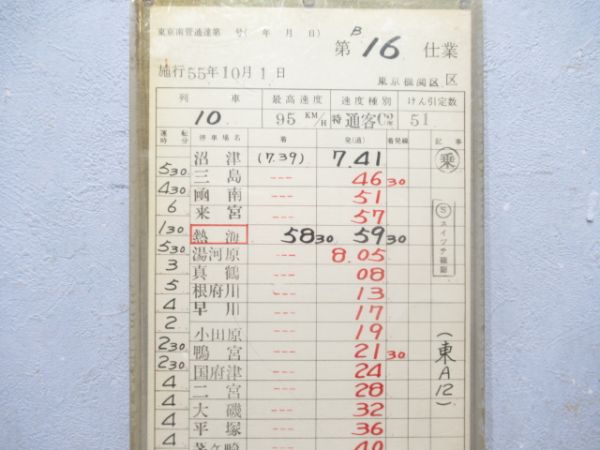 東京南管通達第 号( 年 月 日)
第 B16 仕業
施行55年10月1日
東京機関区 区
列 車 最高速度 速度種別 けん引定数
10 95 KM/H 特 通客C2 51
運転時分 停車場名 着 発(通) 着発線 記事
沼津 (7.39) 7.41 乗
5 30
三島 --- 46 30
4 30
函南 --- 51
6
来宮 --- 57
1 30
熱海 58 30 59 30 S スイッチ確認
5 30
湯河原 --- 8.05
3
真鶴 --- 08
5
根府川 --- 13
4
早川 --- 17
2
小田原 --- 19
2 30
鴨宮 --- 21 30 (東A12)
2 30
国府津 --- 24
4
二宮 --- 28
4
大磯 --- 32
4
平塚 --- 36
4
茅ヶ崎 --- 40